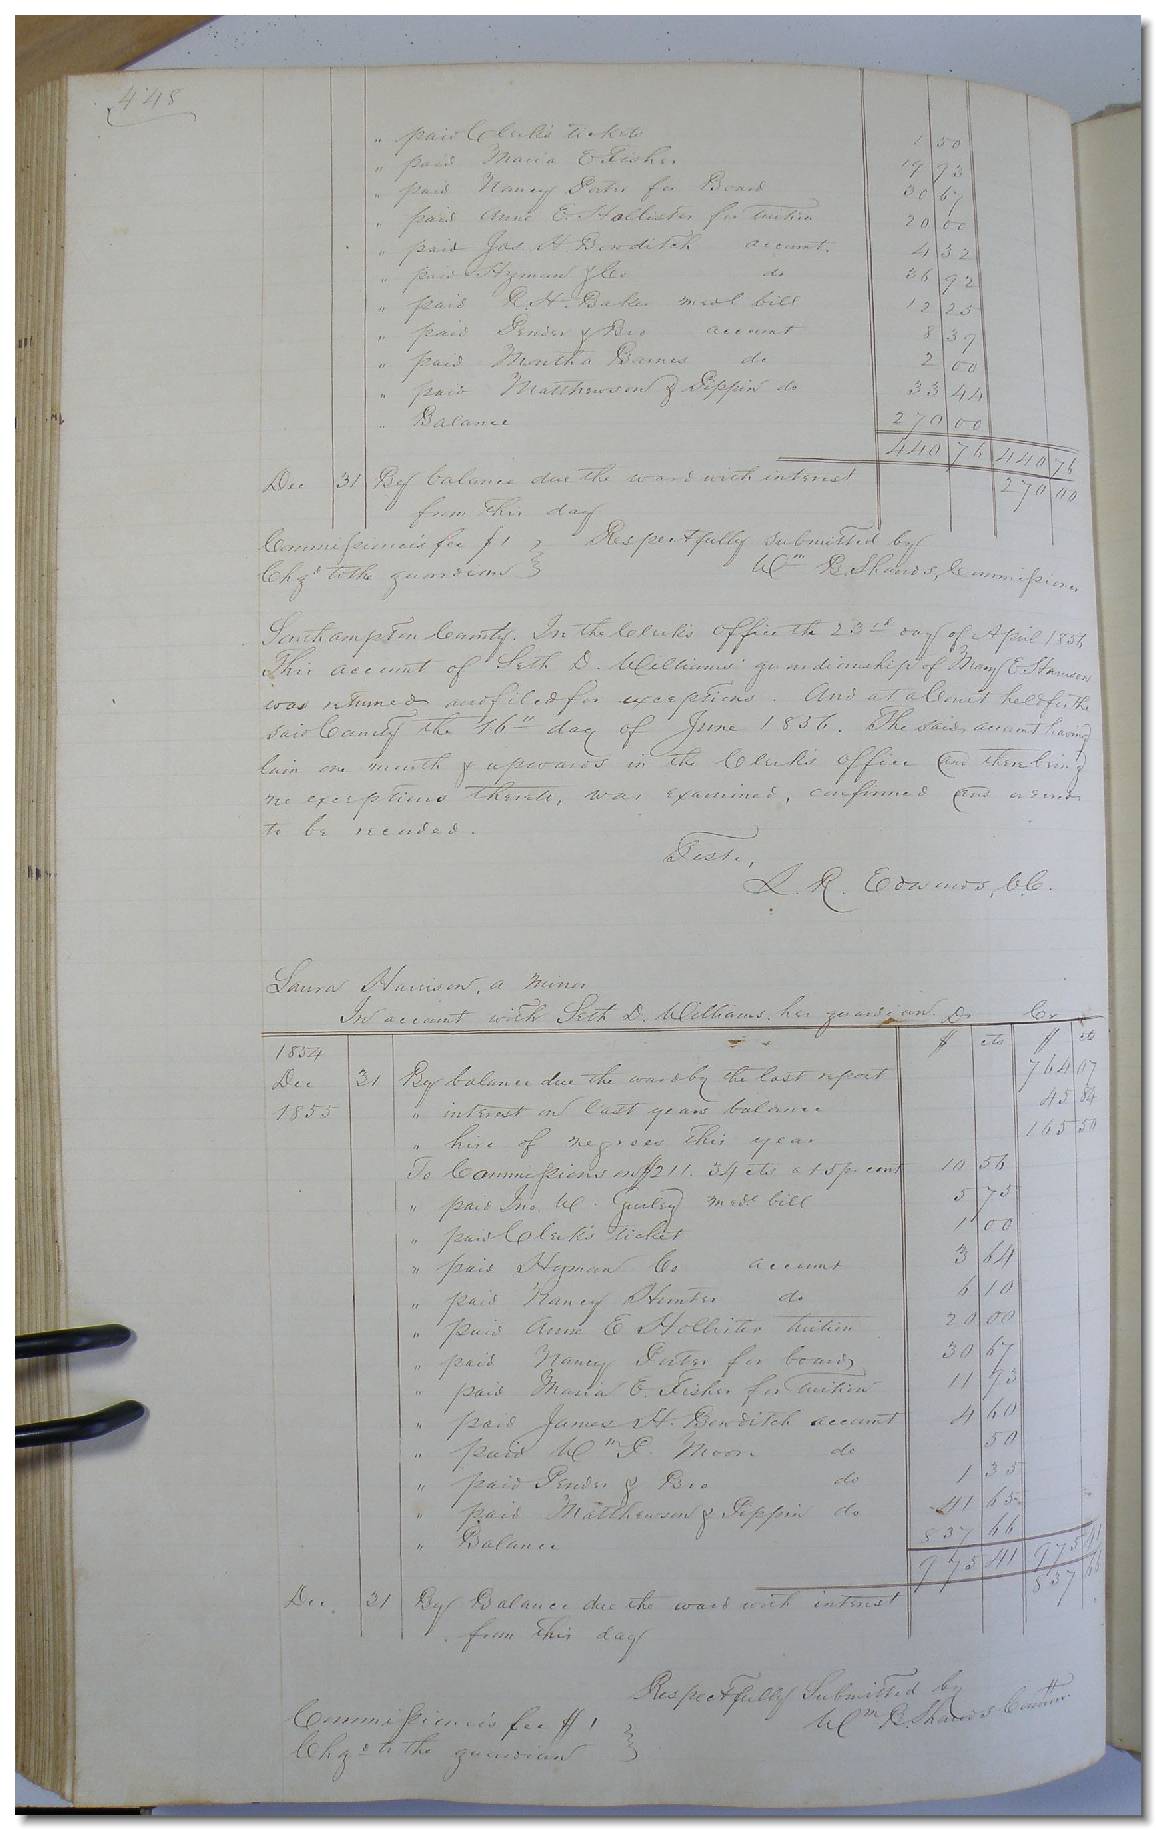 448
" paid Clerks tickets 1 50
" paid Maria E Fisher 19 93
" paid Nancy Porter for Board 30 67
" paid Anne E Hollister for tuition 20 00
" paid Jas. H Bowditch account. 4 32
" paid Hyman & Co do 36 92
" paid R. H. Baker medl bill 12 25
" paid Pender & Bro account 8 39
" paid Martha Barnes do 2 00
" paid Matthewson & Pippin do 33 44
" Balance 270 00
440 76 440 76
Dec 31 By balance due the ward with interest 270 00
from this day
Commissioner's fee $1 } Respectfully submitted by
Chgd to the guardian } Wm B. Shands, Commissioner
Southampton County. In the Clerk's office the 23rd day of April 1856
This account of Seth D. Williams' guardianship of Mary E Harrison
was returned and filed for exceptions. And at a Court held for the
said County the 16th day of June 1856. The said account having
lain one month & upwards in the Clerk's office and there being
no exceptions thereto, was examined, confirmed and ordered
to be recorded.
Teste,
L. R. Edwards, C.C.
Laura Harrison, a minor
In account with Seth D. Williams, her guardian Dr Cr
1854 $ cts $ cts
Dec 31 By balance due the ward by the last report 764 07
1855 " interest on last years balance 45 84
" hire of negroes this year 165 50
To Commissions on $211.34 cts a 5 pr cent 10 56
" paid Jno. W. Gurley medl bill 5 75
" paid Clerk's ticket 1 00
" paid Hyman Co account 3 64
" paid Nancy Hunter do 6 10
" paid Anne E Hollister tuition 20 00
" paid Nancy Porter for board 30 67
" paid Maria E. Fisher for tuition 11 93
" paid James H. Bowditch account 4 60
" paid Wm P. Moore do 50
" paid Pender & Bro do 1 35
" paid Matthewson & Pippin do 41 65
" Balance 837 66
975 41 975 41
Dec 31 By Balance due the ward with interest 837 66
from this day
Respectfully Submitted by
Commissioner's fee $1 } Wm B. Shands Commr.
Chgd to the guardian }